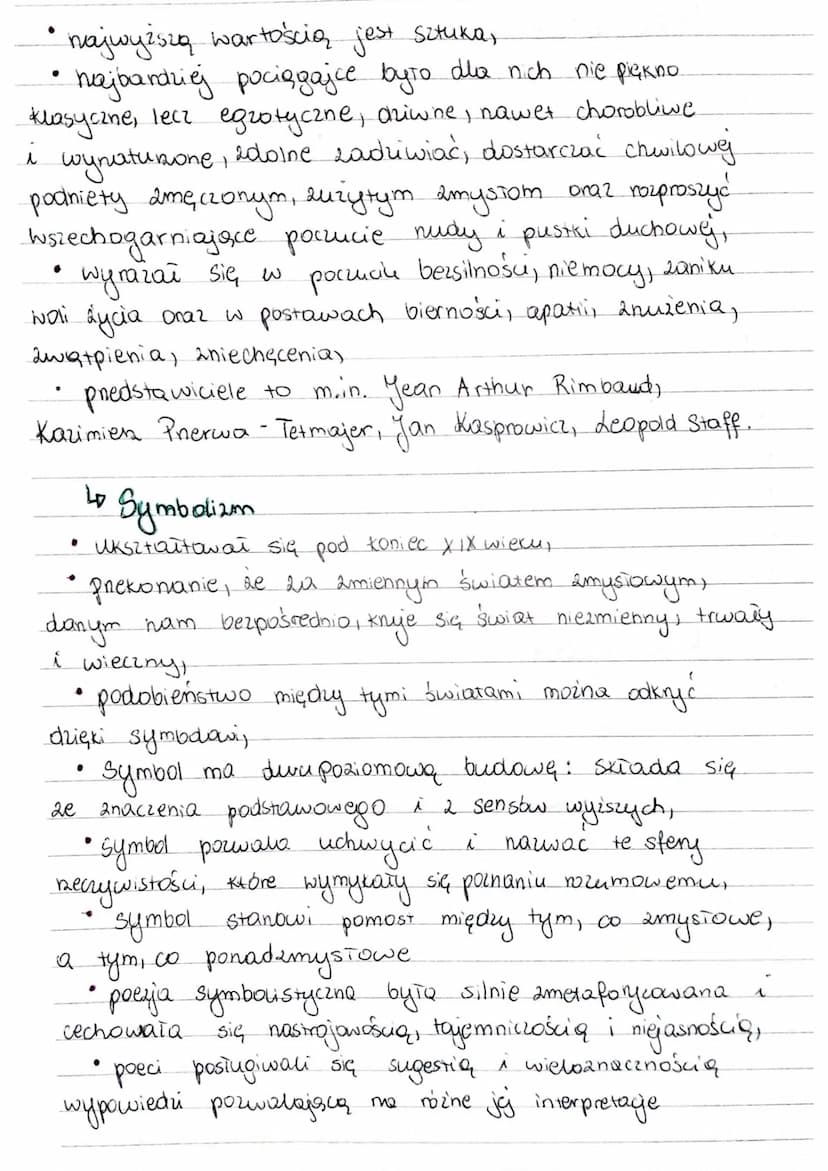 • najwyższą wartością jest sztuka,
• najbardziej pociągające było dla nich nie piękno
klasyczne, lecz egzotyczne, dziwne, nawet chorobliwe
i wynaturzone, zdolne zadziwiać, dostarczać chwilowej
podniety zmęczonym, zużytym zmysłom oraz rozproszyć
wszechogarniające poczucie nudy i pustki duchowej,
• wyrażał się w poczuciu bezsilności, niemocy, zaniku
woli życia oraz w postawach bierności, apatii, znużenia,
zwątpienia, zniechęcenia,
• przedstawiciele to m.in. Jean Arthur Rimbaud,
Kazimierz Przerwa - Tetmajer, Jan Kasprowicz, Leopold Staff.
↳ Symbolizm
• ukształtował się pod koniec XIX wieku,
• przekonanie, że za zmiennym światem zmysłowym,
danym nam bezpośrednio, kryje się świat niezmienny, trwały
i wieczny,
• podobieństwo między tymi światami można odkryć
dzięki symbolowi,
• Symbol ma dwupoziomową budowę: składa się
ze znaczenia podstawowego i z sensów wyższych,
• symbol pozwala uchwycić i nazwać te sfery
rzeczywistości, które wymykały się poznaniu rozumowemu,
• symbol stanowi pomost między tym, co zmysłowe,
a tym, co ponadzmysłowe
• poezja symbolistyczna była silnie zmetaforyzowana i
cechowała się nastrojowością, tajemniczością i niejasnością,
• poeci posługiwali się sugestią i wieloznacznością
wypowiedzi pozwalającą na różne jej interpretacje